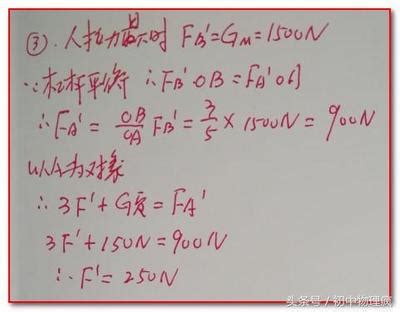 ③. 人拉力最小时 FB'=GM=1500N
∵杠杆平衡 ∴FB' OB = FA' OA
∴FA' = OB/OA FB' = 3/5 × 1500N = 900N
以A为对象
∴ 3F' + G总 = FA'
3F' + 150N = 900N
∴ F' = 250N
头条号 / 初中物理疯